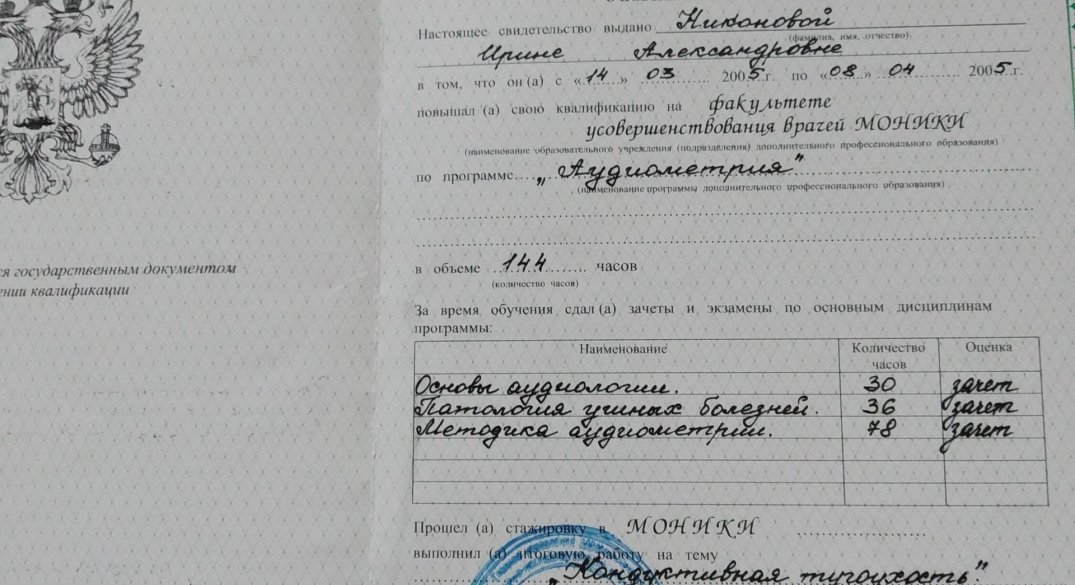 Настоящее свидетельство выдано Никоновой
(фамилия, имя, отчество)
Ирине Александровне
в том, что он (а) с «14» 03 2005 г. по «08» 04 2005 г.
повышал (а) свою квалификацию на факультете
усовершенствования врачей МОНИКИ
(наименование образовательного учреждения (подразделения) дополнительного професионального образования)
по программе „Аудиометрия"
(наименование программы дополнительного профессионального образования)
ся государственным документом
ении квалификации
в объеме 144 часов
(количество часов)
За время обучения сдал (а) зачеты и экзамены по основным дисциплинам
программы:
Наименование Количество часов Оценка
Основы аудиологии. 30 зачет
Патология ушных болезней. 36 зачет
Методика аудиометрии. 78 зачет
Прошел (а) стажировку в МОНИКИ
выполнил (а) итоговую работу на тему
„Кондуктивная тугоухость".